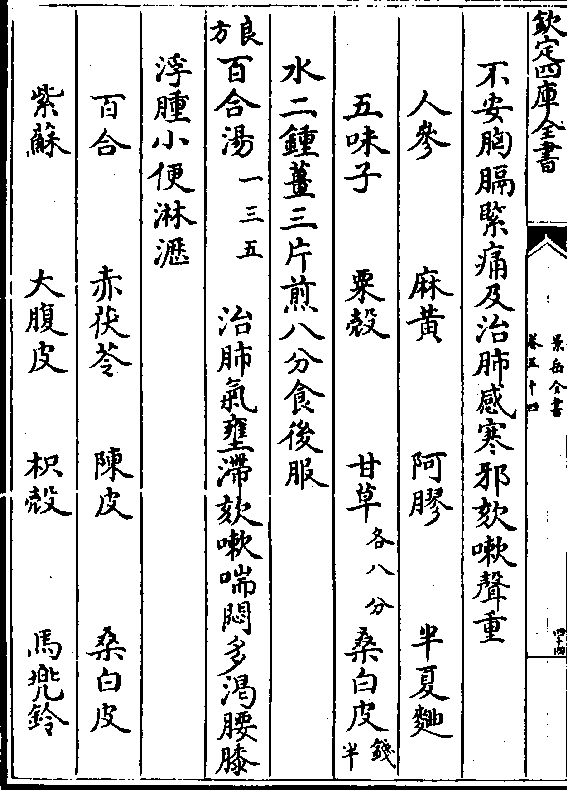 欽定四庫全書
景岳全書
卷五十四
四十四
不安胸膈緊痛及治肺感寒邪欬嗽聲重
人參 麻黃 阿膠 半夏麯
五味子 粟殼 甘草各八分 桑白皮錢半
水二鍾薑三片煎八分食後服
良方百合湯一三五 治肺氣壅滯欬嗽喘悶多渴腰膝
浮腫小便淋瀝
百合 赤茯苓 陳皮 桑白皮
紫蘇 大腹皮 枳殼 馬兜鈴